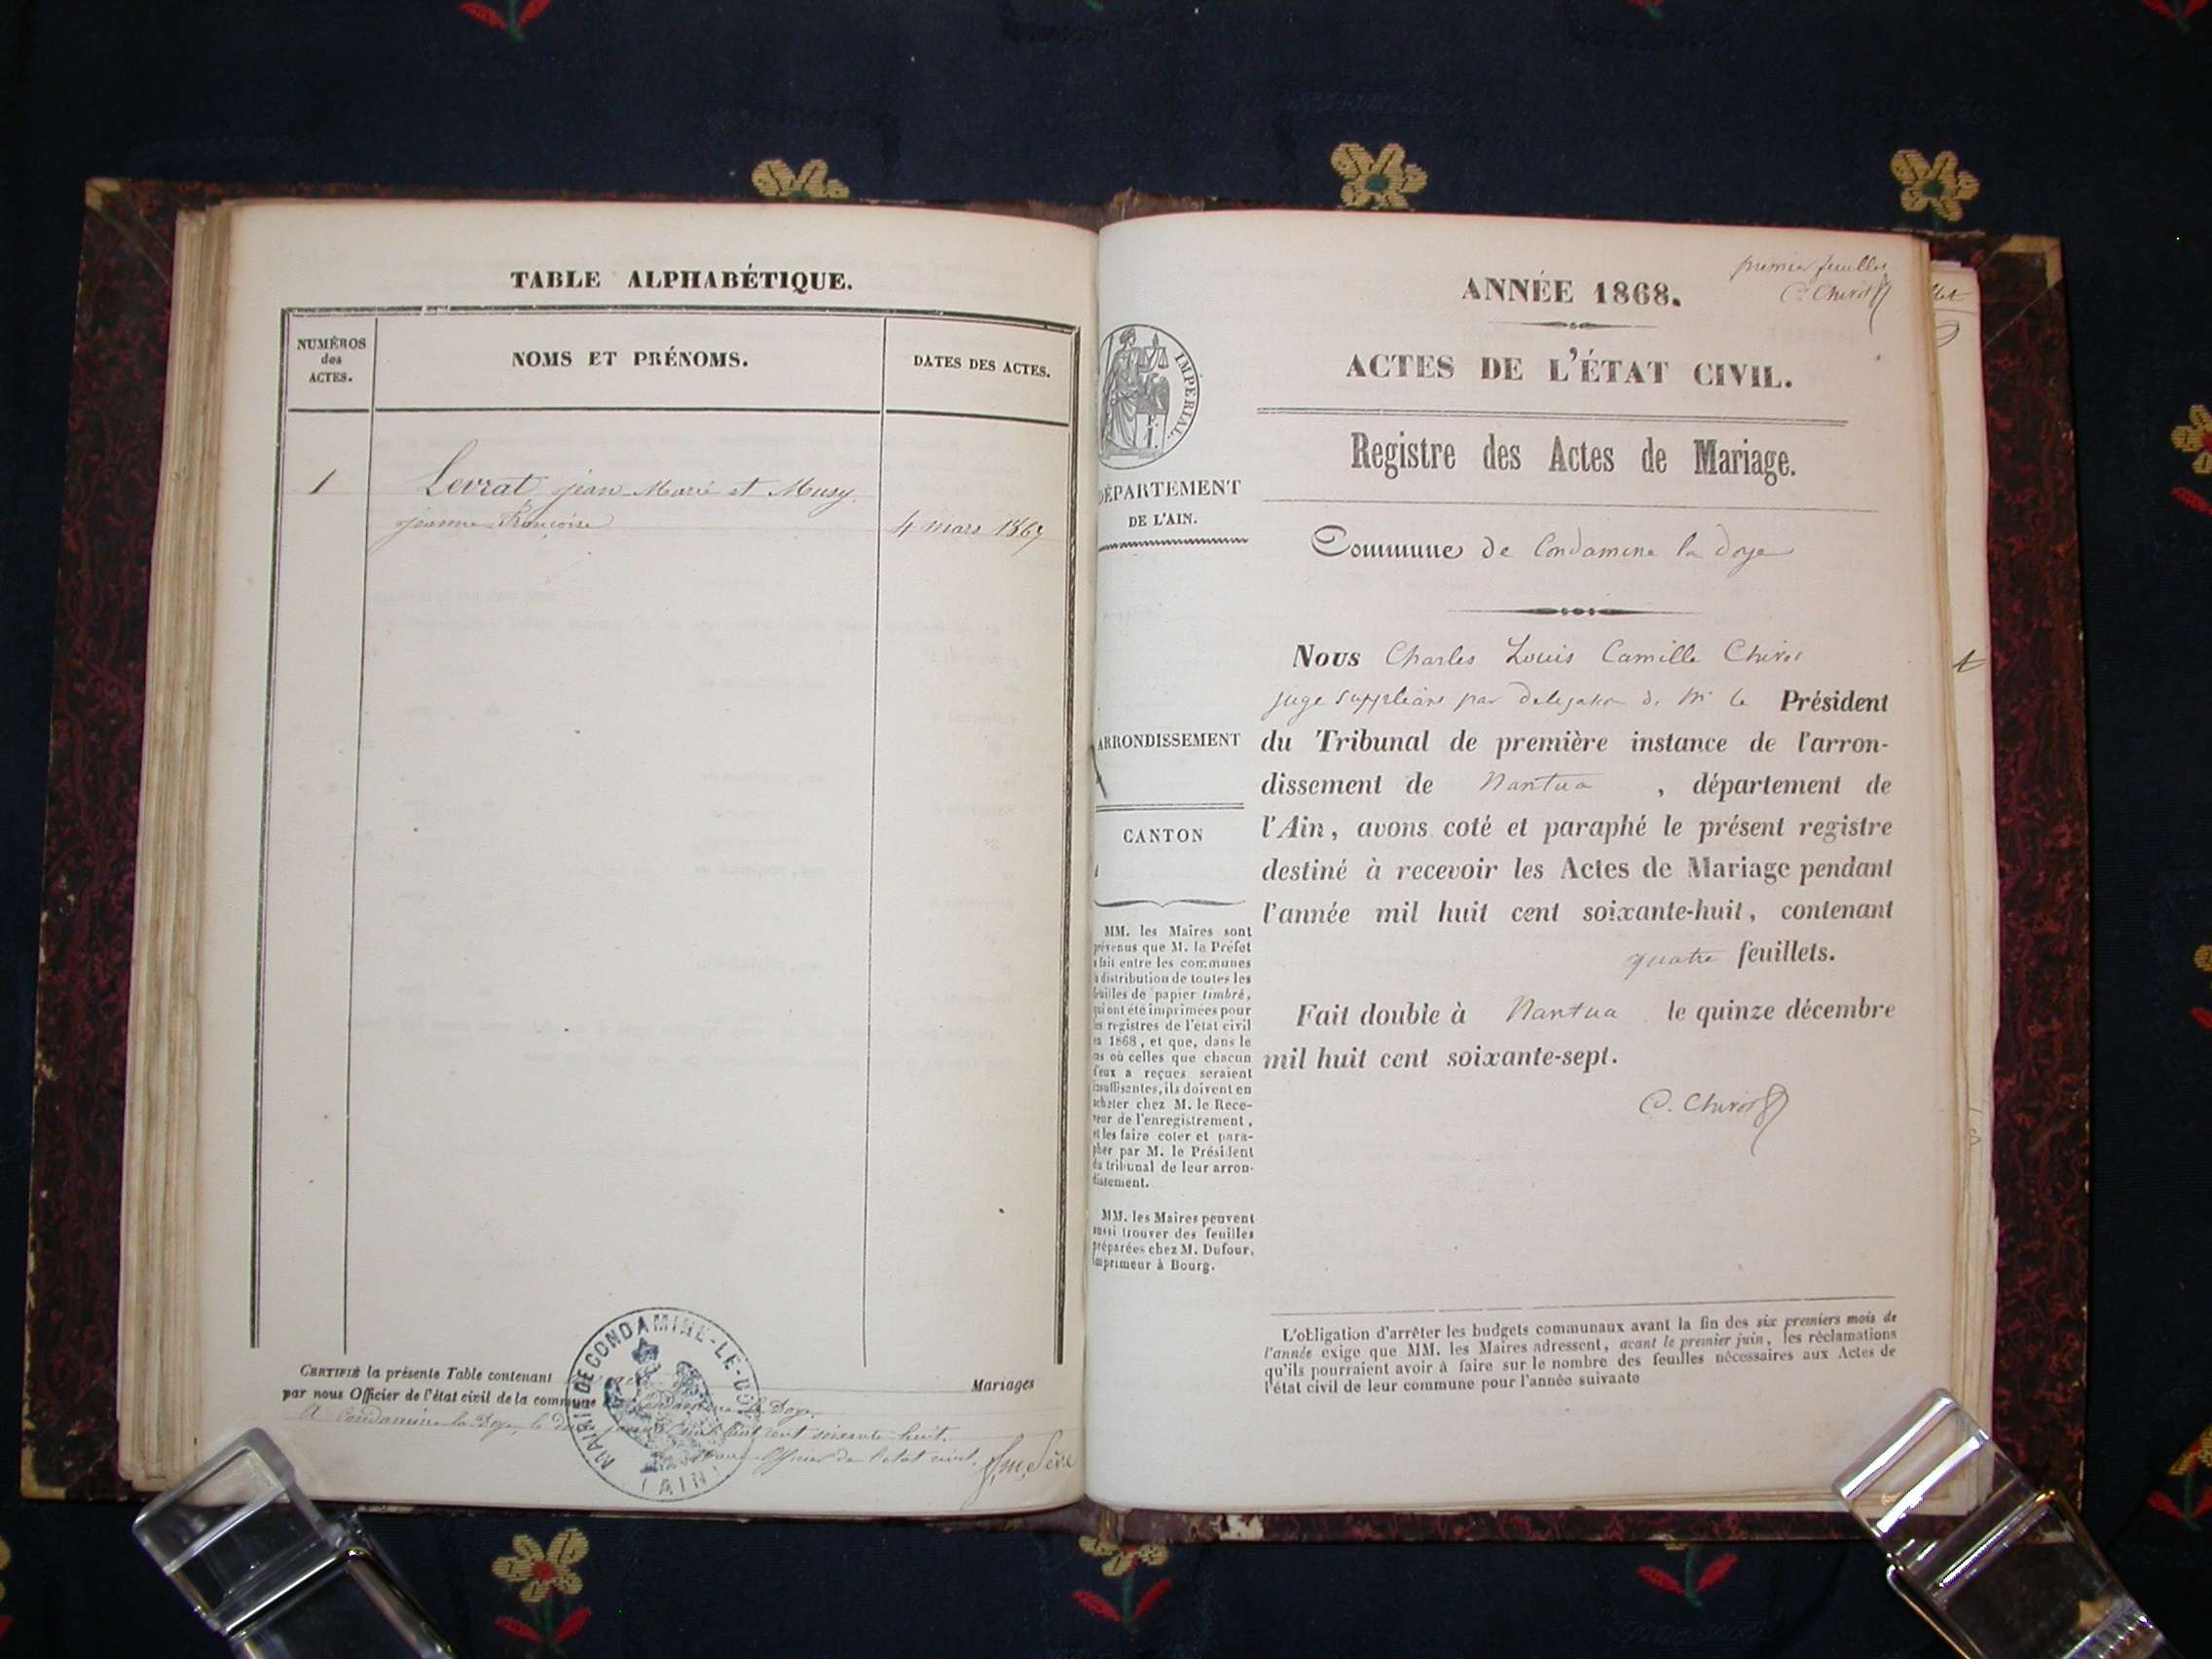 TABLE ALPHABÉTIQUE.
NUMÉROS
des
ACTES.
NOMS ET PRÉNOMS.
DATES DES ACTES.
1
Levrat jean Marie et Musy
jeanne Françoise
4 mars 1867
CERTIFIÉ la présente Table contenant
Mariages
par nous Officier de l'état civil de la commune
Condamine la Doye.
A Condamine la Doye, le
cent soixante huit.
Officier de l'état civil.
MAIRIE DE CONDAMINE-LE-DOYE
(AIN)
premier feuillet
C. Chivot
ANNÉE 1868.
ACTES DE L'ÉTAT CIVIL.
Registre des Actes de Mariage.
IMPÉRIAL.
1.
DÉPARTEMENT
DE L'AIN.
ARRONDISSEMENT
CANTON
MM. les Maires sont
prévenus que M. le Préfet
a fait entre les communes
la distribution de toutes les
feuilles de papier timbré,
qui ont été imprimées pour
les registres de l'état civil
en 1868, et que, dans le
cas où celles que chacun
d'eux a reçues seraient
insuffisantes, ils doivent en
acheter chez M. le Rece-
veur de l'enregistrement,
et les faire coter et para-
pher par M. le Président
du tribunal de leur arron-
dissement.
MM. les Maires peuvent
aussi trouver des feuilles
préparées chez M. Dufour,
imprimeur à Bourg.
Commune de Condamine la Doye
Nous Charles Louis Camille Chivot
juge suppléant par délégation de Mr le Président
du Tribunal de première instance de l'arron-
dissement de Nantua, département de
l'Ain, avons coté et paraphé le présent registre
destiné à recevoir les Actes de Mariage pendant
l'année mil huit cent soixante-huit, contenant
quatre feuillets.
Fait double à Nantua le quinze décembre
mil huit cent soixante-sept.
C. Chivot
L'obligation d'arrêter les budgets communaux avant la fin des six premiers mois de
l'année exige que MM. les Maires adressent, avant le premier juin, les réclamations
qu'ils pourraient avoir à faire sur le nombre des feuilles nécessaires aux Actes de
l'état civil de leur commune pour l'année suivante